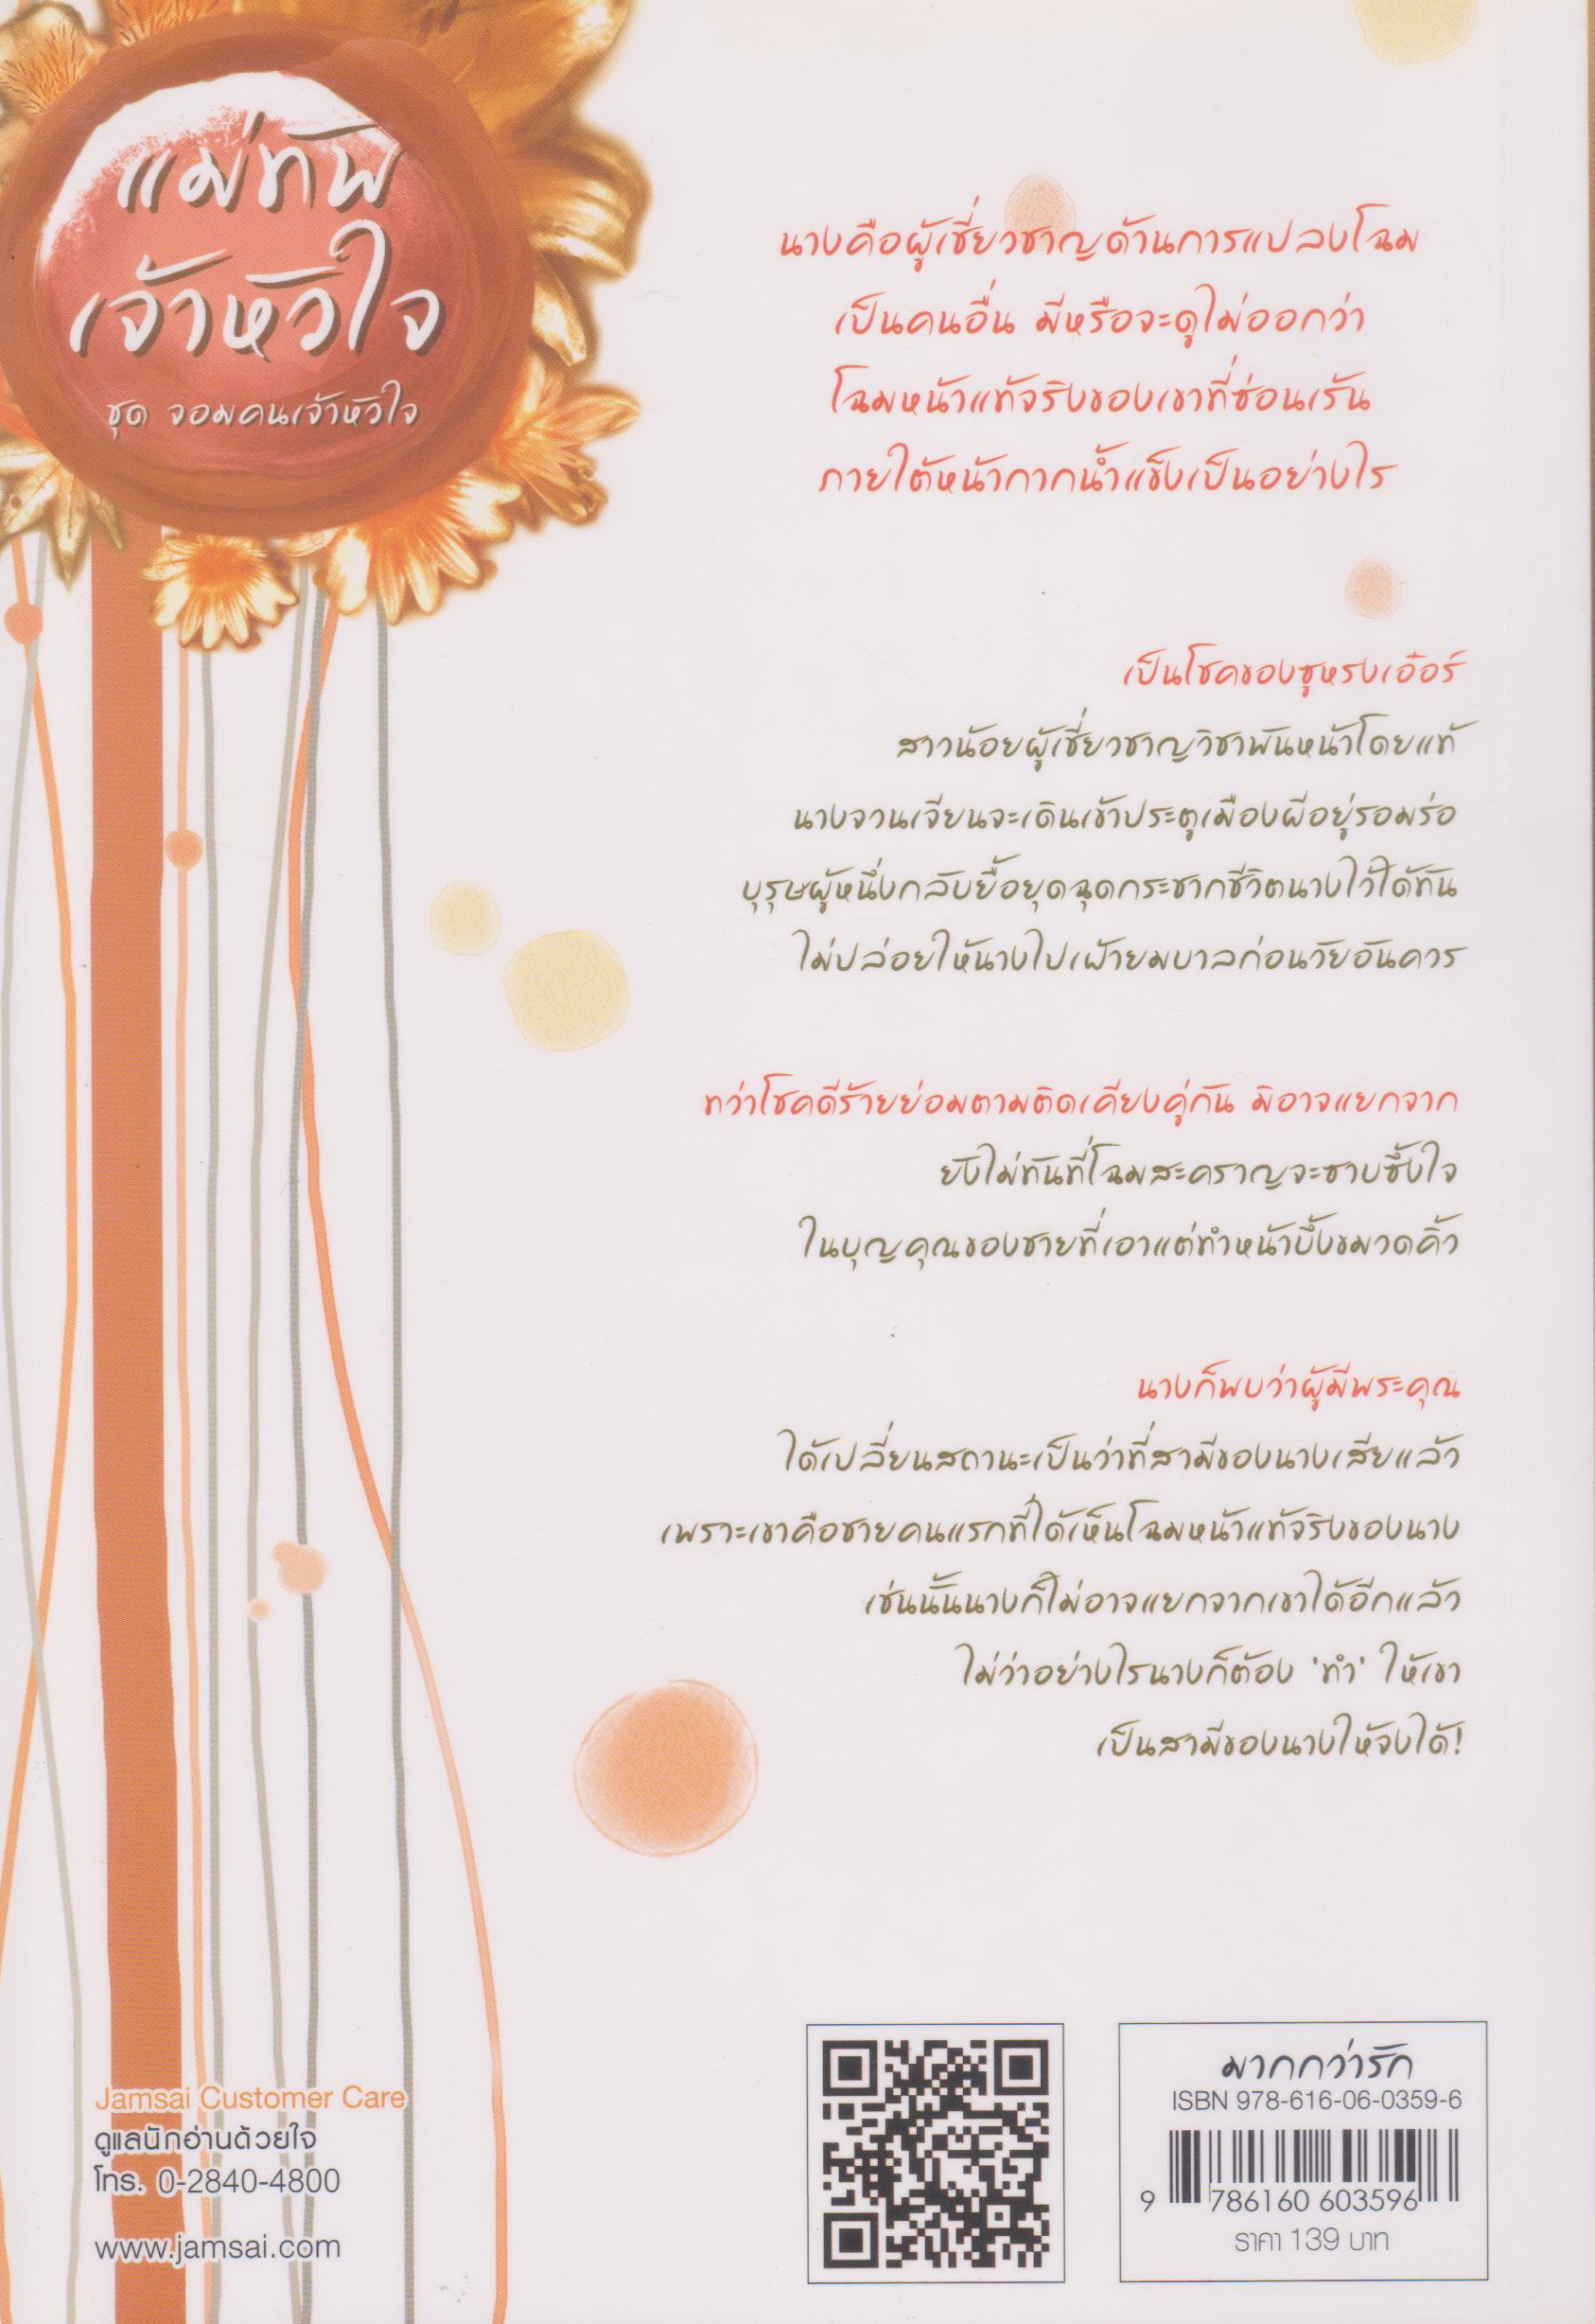 แม่ทัพ
เจ้าหัวใจ
ชุด จอมคนเจ้าหัวใจ
นางคือผู้เชี่ยวชาญด้านการแปลงโฉม
เป็นคนอื่น มีหรือจะดูไม่ออกว่า
โฉมหน้าแท้จริงของเขาที่ซ่อนเร้น
ภายใต้หน้ากากน้ำแข็งเป็นอย่างไร
เป็นโชคของซูหรงเอ๋อร์
สาวน้อยผู้เชี่ยวชาญวิชาพันหน้าโดยแท้
นางจวนเจียนจะเดินเข้าประตูเมืองผีอยู่รอมร่อ
บุรุษผู้หนึ่งกลับยื้อยุดฉุดกระชากชีวิตนางไว้ได้ทัน
ไม่ปล่อยให้นางไปเฝ้ายมบาลก่อนวัยอันควร
ทว่าโชคดีร้ายย่อมตามติดเคียงคู่กัน มิอาจแยกจาก
ยังไม่ทันที่โฉมสะคราญจะซาบซึ้งใจ
ในบุญคุณของชายที่เอาแต่ทำหน้าบึ้งขมวดคิ้ว
นางก็พบว่าผู้มีพระคุณ
ได้เปลี่ยนสถานะเป็นว่าที่สามีของนางเสียแล้ว
เพราะเขาคือชายคนแรกที่ได้เห็นโฉมหน้าแท้จริงของนาง
เช่นนั้นนางก็ไม่อาจแยกจากเขาได้อีกแล้ว
ไม่ว่าอย่างไรนางก็ต้อง 'ทำ' ให้เขา
เป็นสามีของนางให้จงได้!
Jamsai Customer Care
ดูแลนักอ่านด้วยใจ
โทร. 0-2840-4800
www.jamsai.com
มากกว่ารัก
ISBN 978-616-06-0359-6
9 786160 603596
ราคา 139 บาท